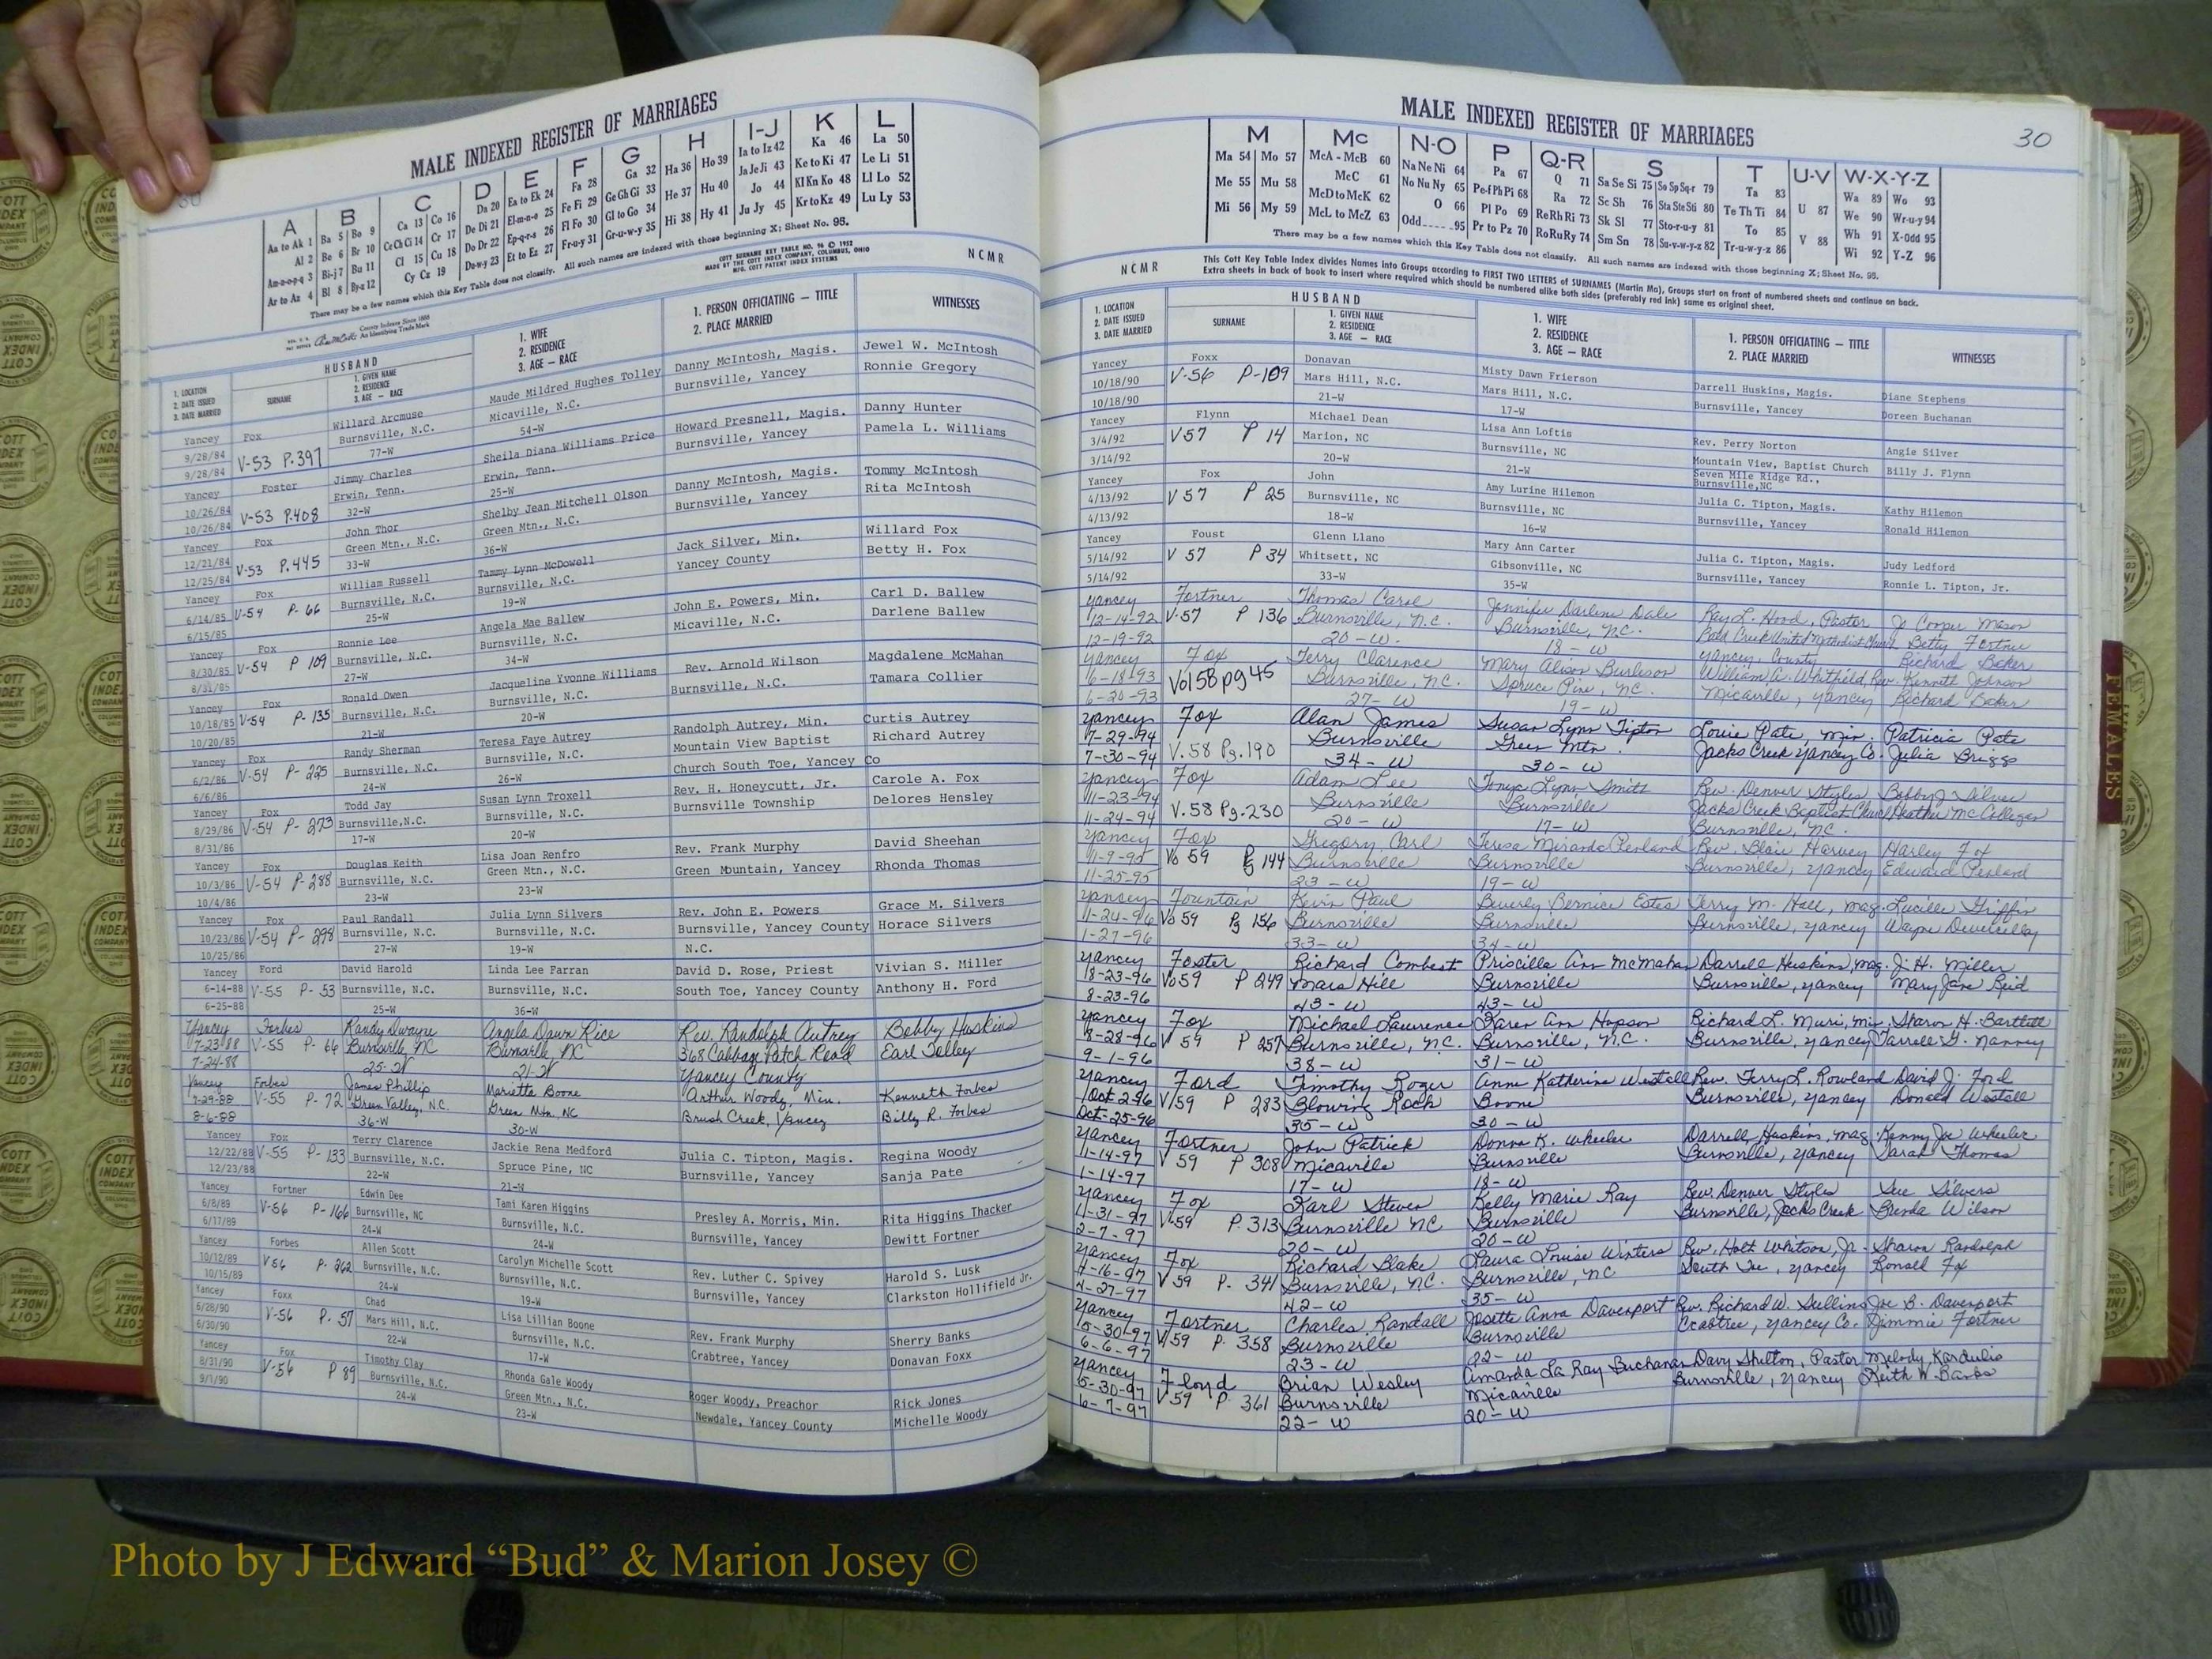 MALE INDEXED REGISTER OF MARRIAGES
A B C D E F G H I-J K L
Aa to Ak 1 Ba 5 Bo 9 Ca 13 Co 16 Da 20 Ea to Ek 24 Fa 28 Ga 32 Ha 36 Ho 39 Ia to Iz 42 Ka 46 La 50
Al 2 Be 6 Br 10 Ce Ch Ci 14 Cr 17 De Di 21 El-m-n-o 25 Fe Fi 29 Ge Gh Gi 33 He 37 Hu 40 Ja Je Ji 43 Ke to Ki 47 Le Li 51
Am-n-o-p-q 3 Bi-j 7 Bu 11 Cl 15 Cu 18 Do Dr 22 Ep-q-r-s 26 Fl Fo 30 Gl to Go 34 Hi 38 Hy 41 Jo 44 Kl Kn Ko 48 Ll Lo 52
Ar to Az 4 Bl 8 By-z 12 Cy Cz 19 Du-w-y 23 Et to Ez 27 Fr-u-y 31 Gr-u-w-y 35 Ju Jy 45 Kr to Kz 49 Lu Ly 53
There may be a few names which this Key Table does not classify. All such names are indexed with those beginning X; Sheet No. 95.
County Indexes Since 1888
An Identifying Trade Mark
COTT SURNAME KEY TABLE NO. 96 © 1952
MADE BY THE COTT INDEX COMPANY, COLUMBUS, OHIO
MFG. COTT PATENT INDEX SYSTEMS
NCMR
1. LOCATION
2. DATE ISSUED
3. DATE MARRIED
HUSBAND
SURNAME
1. GIVEN NAME
2. RESIDENCE
3. AGE — RACE
1. WIFE
2. RESIDENCE
3. AGE — RACE
1. PERSON OFFICIATING — TITLE
2. PLACE MARRIED
WITNESSES
Yancey Fox Willard Arcmuse Maude Mildred Hughes Tolley Danny McIntosh, Magis. Jewel W. McIntosh
9/28/84 V-53 P.397 Burnsville, N.C. Micaville, N.C. Burnsville, Yancey Ronnie Gregory
9/28/84 77-W 54-W
Yancey Foster Jimmy Charles Sheila Diana Williams Price Howard Presnell, Magis. Danny Hunter
10/26/84 V-53 P.408 Erwin, Tenn. Erwin, Tenn. Burnsville, Yancey Pamela L. Williams
10/26/84 32-W 25-W
Yancey Fox John Thor Shelby Jean Mitchell Olson Danny McIntosh, Magis. Tommy McIntosh
12/21/84 V-53 P.445 Green Mtn., N.C. Green Mtn., N.C. Burnsville, Yancey Rita McIntosh
12/25/84 33-W 36-W
Yancey Fox William Russell Tammy Lynn McDowell Jack Silver, Min. Willard Fox
6/14/85 V-54 P-66 Burnsville, N.C. Burnsville, N.C. Yancey County Betty H. Fox
6/15/85 25-W 19-W
Yancey Fox Ronnie Lee Angela Mae Ballew John E. Powers, Min. Carl D. Ballew
8/30/85 V-54 P 109 Burnsville, N.C. Burnsville, N.C. Micaville, N.C. Darlene Ballew
8/31/85 27-W 34-W
Yancey Fox Ronald Owen Jacqueline Yvonne Williams Rev. Arnold Wilson Magdalene McMahan
10/18/85 V-54 P-135 Burnsville, N.C. Burnsville, N.C. Burnsville, N.C. Tamara Collier
10/20/85 21-W 20-W
Yancey Fox Randy Sherman Teresa Faye Autrey Randolph Autrey, Min. Curtis Autrey
6/2/86 V-54 P-225 Burnsville, N.C. Burnsville, N.C. Mountain View Baptist Richard Autrey
6/6/86 24-W 26-W Church South Toe, Yancey Co
Yancey Fox Todd Jay Susan Lynn Troxell Rev. H. Honeycutt, Jr. Carole A. Fox
8/29/86 V-54 P-273 Burnsville,N.C. Burnsville, N.C. Burnsville Township Delores Hensley
8/31/86 17-W 20-W
Yancey Fox Douglas Keith Lisa Joan Renfro Rev. Frank Murphy David Sheehan
10/3/86 V-54 P-288 Burnsville, N.C. Green Mtn., N.C. Green Mountain, Yancey Rhonda Thomas
10/4/86 23-W 23-W
Yancey Fox Paul Randall Julia Lynn Silvers Rev. John E. Powers Grace M. Silvers
10/23/86 V-54 P-298 Burnsville, N.C. Burnsville, N.C. Burnsville, Yancey County Horace Silvers
10/25/86 27-W 19-W N.C.
Yancey Ford David Harold Linda Lee Farran David D. Rose, Priest Vivian S. Miller
6-14-88 V-55 P-53 Burnsville, N.C. Burnsville, N.C. South Toe, Yancey County Anthony H. Ford
6-25-88 25-W 36-W
Yancey Forbes Randy Dwayne Angela Dawn Rice Rev. Randolph Autrey Bobby Huskins
7-23-88 V-55 P-66 Burnsville, NC Burnsville, NC 368 Cabbage Patch Road Earl Tolley
7-24-88 25-W 21-W Yancey County
Yancey Forbes James Phillip Marietta Boone Arthur Woody, Min. Kenneth Forbes
7-29-88 V-55 P-72 Green Valley, N.C. Green Mtn, NC Brush Creek, Yancey Billy R. Forbes
8-6-88 36-W 30-W
Yancey Fox Terry Clarence Jackie Rena Medford Julia C. Tipton, Magis. Regina Woody
12/22/88 V-55 P-133 Burnsville, N.C. Spruce Pine, NC Burnsville, Yancey Sanja Pate
12/23/88 22-W 21-W
Yancey Fortner Edwin Dee Tami Karen Higgins Presley A. Morris, Min. Rita Higgins Thacker
6/8/89 V-56 P-166 Burnsville, NC Burnsville, N.C. Burnsville, Yancey Dewitt Fortner
6/17/89 24-W 24-W
Yancey Forbes Allen Scott Carolyn Michelle Scott Rev. Luther C. Spivey Harold S. Lusk
10/12/89 V56 P-262 Burnsville, N.C. Burnsville, N.C. Burnsville, Yancey Clarkston Hollifield Jr.
10/15/89 24-W 19-W
Yancey Foxx Chad Lisa Lillian Boone Rev. Frank Murphy Sherry Banks
6/28/90 V-56 P-57 Mars Hill, N.C. Burnsville, N.C. Crabtree, Yancey Donavan Foxx
6/30/90 22-W 17-W
Yancey Fox Timothy Clay Rhonda Gale Woody Roger Woody, Preachor Rick Jones
8/31/90 V-56 P 89 Burnsville, N.C. Green Mtn., N.C. Newdale, Yancey County Michelle Woody
9/1/90 24-W 23-W
MALE INDEXED REGISTER OF MARRIAGES 30
M Mc N-O P Q-R S T U-V W-X-Y-Z
Ma 54 Mo 57 McA - McB 60 Na Ne Ni 64 Pa 67 Q 71 Sa Se Si 75 So Sp Sq-r 79 Ta 83 Wa 89 Wo 93
Me 55 Mu 58 McC 61 No Nu Ny 65 Pe-f Ph Pi 68 Ra 72 Sc Sh 76 Sta Ste Sti 80 Te Th Ti 84 U 87 We 90 Wr-u-y 94
Mi 56 My 59 McD to McK 62 O 66 Pl Po 69 Re Rh Ri 73 Sk Sl 77 Sto-r-u-y 81 To 85 V 88 Wh 91 X-Odd 95
McL to McZ 63 Odd 95 Pr to Pz 70 Ro Ru Ry 74 Sm Sn 78 Su-v-w-y-z 82 Tr-u-w-y-z 86 Wi 92 Y-Z 96
There may be a few names which this Key Table does not classify. All such names are indexed with those beginning X; Sheet No. 95.
NCMR
This Cott Key Table Index divides Names into Groups according to FIRST TWO LETTERS of SURNAMES (Martin Ma), Groups start on front of numbered sheets and continue on back.
Extra sheets in back of book to insert where required which should be numbered alike both sides (preferably red ink) same as original sheet.
1. LOCATION
2. DATE ISSUED
3. DATE MARRIED
HUSBAND
SURNAME
1. GIVEN NAME
2. RESIDENCE
3. AGE — RACE
1. WIFE
2. RESIDENCE
3. AGE — RACE
1. PERSON OFFICIATING — TITLE
2. PLACE MARRIED
WITNESSES
Yancey Foxx Donavan Misty Dawn Frierson Darrell Huskins, Magis. Diane Stephens
10/18/90 V-56 P-109 Mars Hill, N.C. Mars Hill, N.C. Burnsville, Yancey Doreen Buchanan
10/18/90 21-W 17-W
Yancey Flynn Michael Dean Lisa Ann Loftis Rev. Perry Norton Angie Silver
3/4/92 V57 P 14 Marion, NC Burnsville, NC Mountain View, Baptist Church Billy J. Flynn
3/14/92 20-W 21-W Seven Mile Ridge Rd., Burnsville,NC
Yancey Fox John Amy Lurine Hilemon Julia C. Tipton, Magis. Kathy Hilemon
4/13/92 V 57 P 25 Burnsville, NC Burnsville, NC Burnsville, Yancey Ronald Hilemon
4/13/92 18-W 16-W
Yancey Foust Glenn Llano Mary Ann Carter Julia C. Tipton, Magis. Judy Ledford
5/14/92 V 57 P 34 Whitsett, NC Gibsonville, NC Burnsville, Yancey Ronnie L. Tipton, Jr.
5/14/92 33-W 35-W
Yancey Fortner Thomas Carol Jennifer Darlene Dale Ray L. Hood, Pastor J. Cooper Mason
12-14-92 V-57 P 136 Burnsville, N.C. Burnsville, NC. Bald Creek United Methodist Church Betty Fortner
12-19-92 20-W. 18-W Yancey County Richard Baker
Yancey Fox Terry Clarence Mary Alison Burleson William A. Whitfield, Rev. Kenneth Johnson
6-18-93 Vol 58 pg 45 Burnsville, NC. Spruce Pine, NC. Micaville, Yancey Richard Baker
6-20-93 27-W 19-W
Yancey Fox Alan James Susan Lynn Tipton Louie Pate, Min. Patricia Pate
7-29-94 V.58 Pg.190 Burnsville Green Mtn. Jacks Creek Yancey Co. Julia Briggs
7-30-94 34-W 30-W
Yancey Fox Adam Lee Tonya Lynn Smith Rev. Denver Styles Bobby J. Silver
11-23-94 V.58 Pg.230 Burnsville Burnsville Jacks Creek Baptist Church Heather
11-24-94 20-W 17-W Burnsville, NC.
Yancey Fox Gregory Carl Teresa Miranda Penland Rev. Blair Harvey Harley Fox
11-9-95 Vo 59 Pg 144 Burnsville Burnsville Burnsville, Yancey Edward Penland
11-25-95 23-W 19-W
Yancey Fountain Kevin Paul Beverly Bernice Estes Terry M. Hall, Mag. Lucille Griffin
1-24-96 Vo 59 Pg 156 Burnsville Burnsville Burnsville, Yancey Wayne
1-27-96 33-W 34-W
Yancey Foster Richard Combest Priscilla Ann McMahan Darrell Huskins, Mag. J. H. Miller
8-23-96 Vo 59 P 249 Mars Hill Burnsville Burnsville, Yancey Mary Jane Reid
8-23-96 43-W 43-W
Yancey Fox Michael Lawrence Karen Ann Hopson Richard L. Muri, Min. Sharon H. Bartlett
8-28-96 V 59 P 257 Burnsville, N.C. Burnsville, N.C. Burnsville, Yancey Darrell G. Nanney
9-1-96 38-W 31-W
Yancey Ford Timothy Roger Anne Katherine Westall Rev. Terry L. Rowland David J. Ford
Oct. 2-96 V/59 P 283 Blowing Rock Boone Burnsville, Yancey Donald Westall
Oct-25-96 35-W 30-W
Yancey Fortner John Patrick Donna K. Wheeler Darrell Huskins, Mag. Kenny Joe Wheeler
1-14-97 V 59 P 308 Micaville Burnsville Burnsville, Yancey Sarah Thomas
1-14-97 17-W 18-W
Yancey Fox Karl Steven Kelly Marie Ray Rev. Denver Styles Sue Silvers
1-31-97 V-59 P.313 Burnsville NC Burnsville Burnsville, Jacks Creek Brenda Wilson
2-7-97 20-W 20-W
Yancey Fox Richard Blake Laura Louise Winters Rev. Holt Whitson, Jr. Sharon Randolph
4-16-97 V 59 P. 341 Burnsville, N.C. Burnsville, NC South Toe, Yancey Ronald Fox
4-27-97 42-W 35-W
Yancey Fortner Charles Randall Josette Anna Davenport Rev. Richard W. Sullins Joe B. Davenport
5-30-97 V/59 P. 358 Burnsville Burnsville Crabtree, Yancey Co. Jimmie Fortner
6-6-97 23-W 22-W
Yancey Floyd Brian Wesley Amanda La Ray Buchanan Davy Shelton, Pastor Melody Kardulis
5-30-97 V 59 P. 361 Burnsville Micaville Burnsville, Yancey Keith W. Banks
6-7-97 22-W 20-W
FEMALES
Photo by J Edward “Bud” & Marion Josey ©